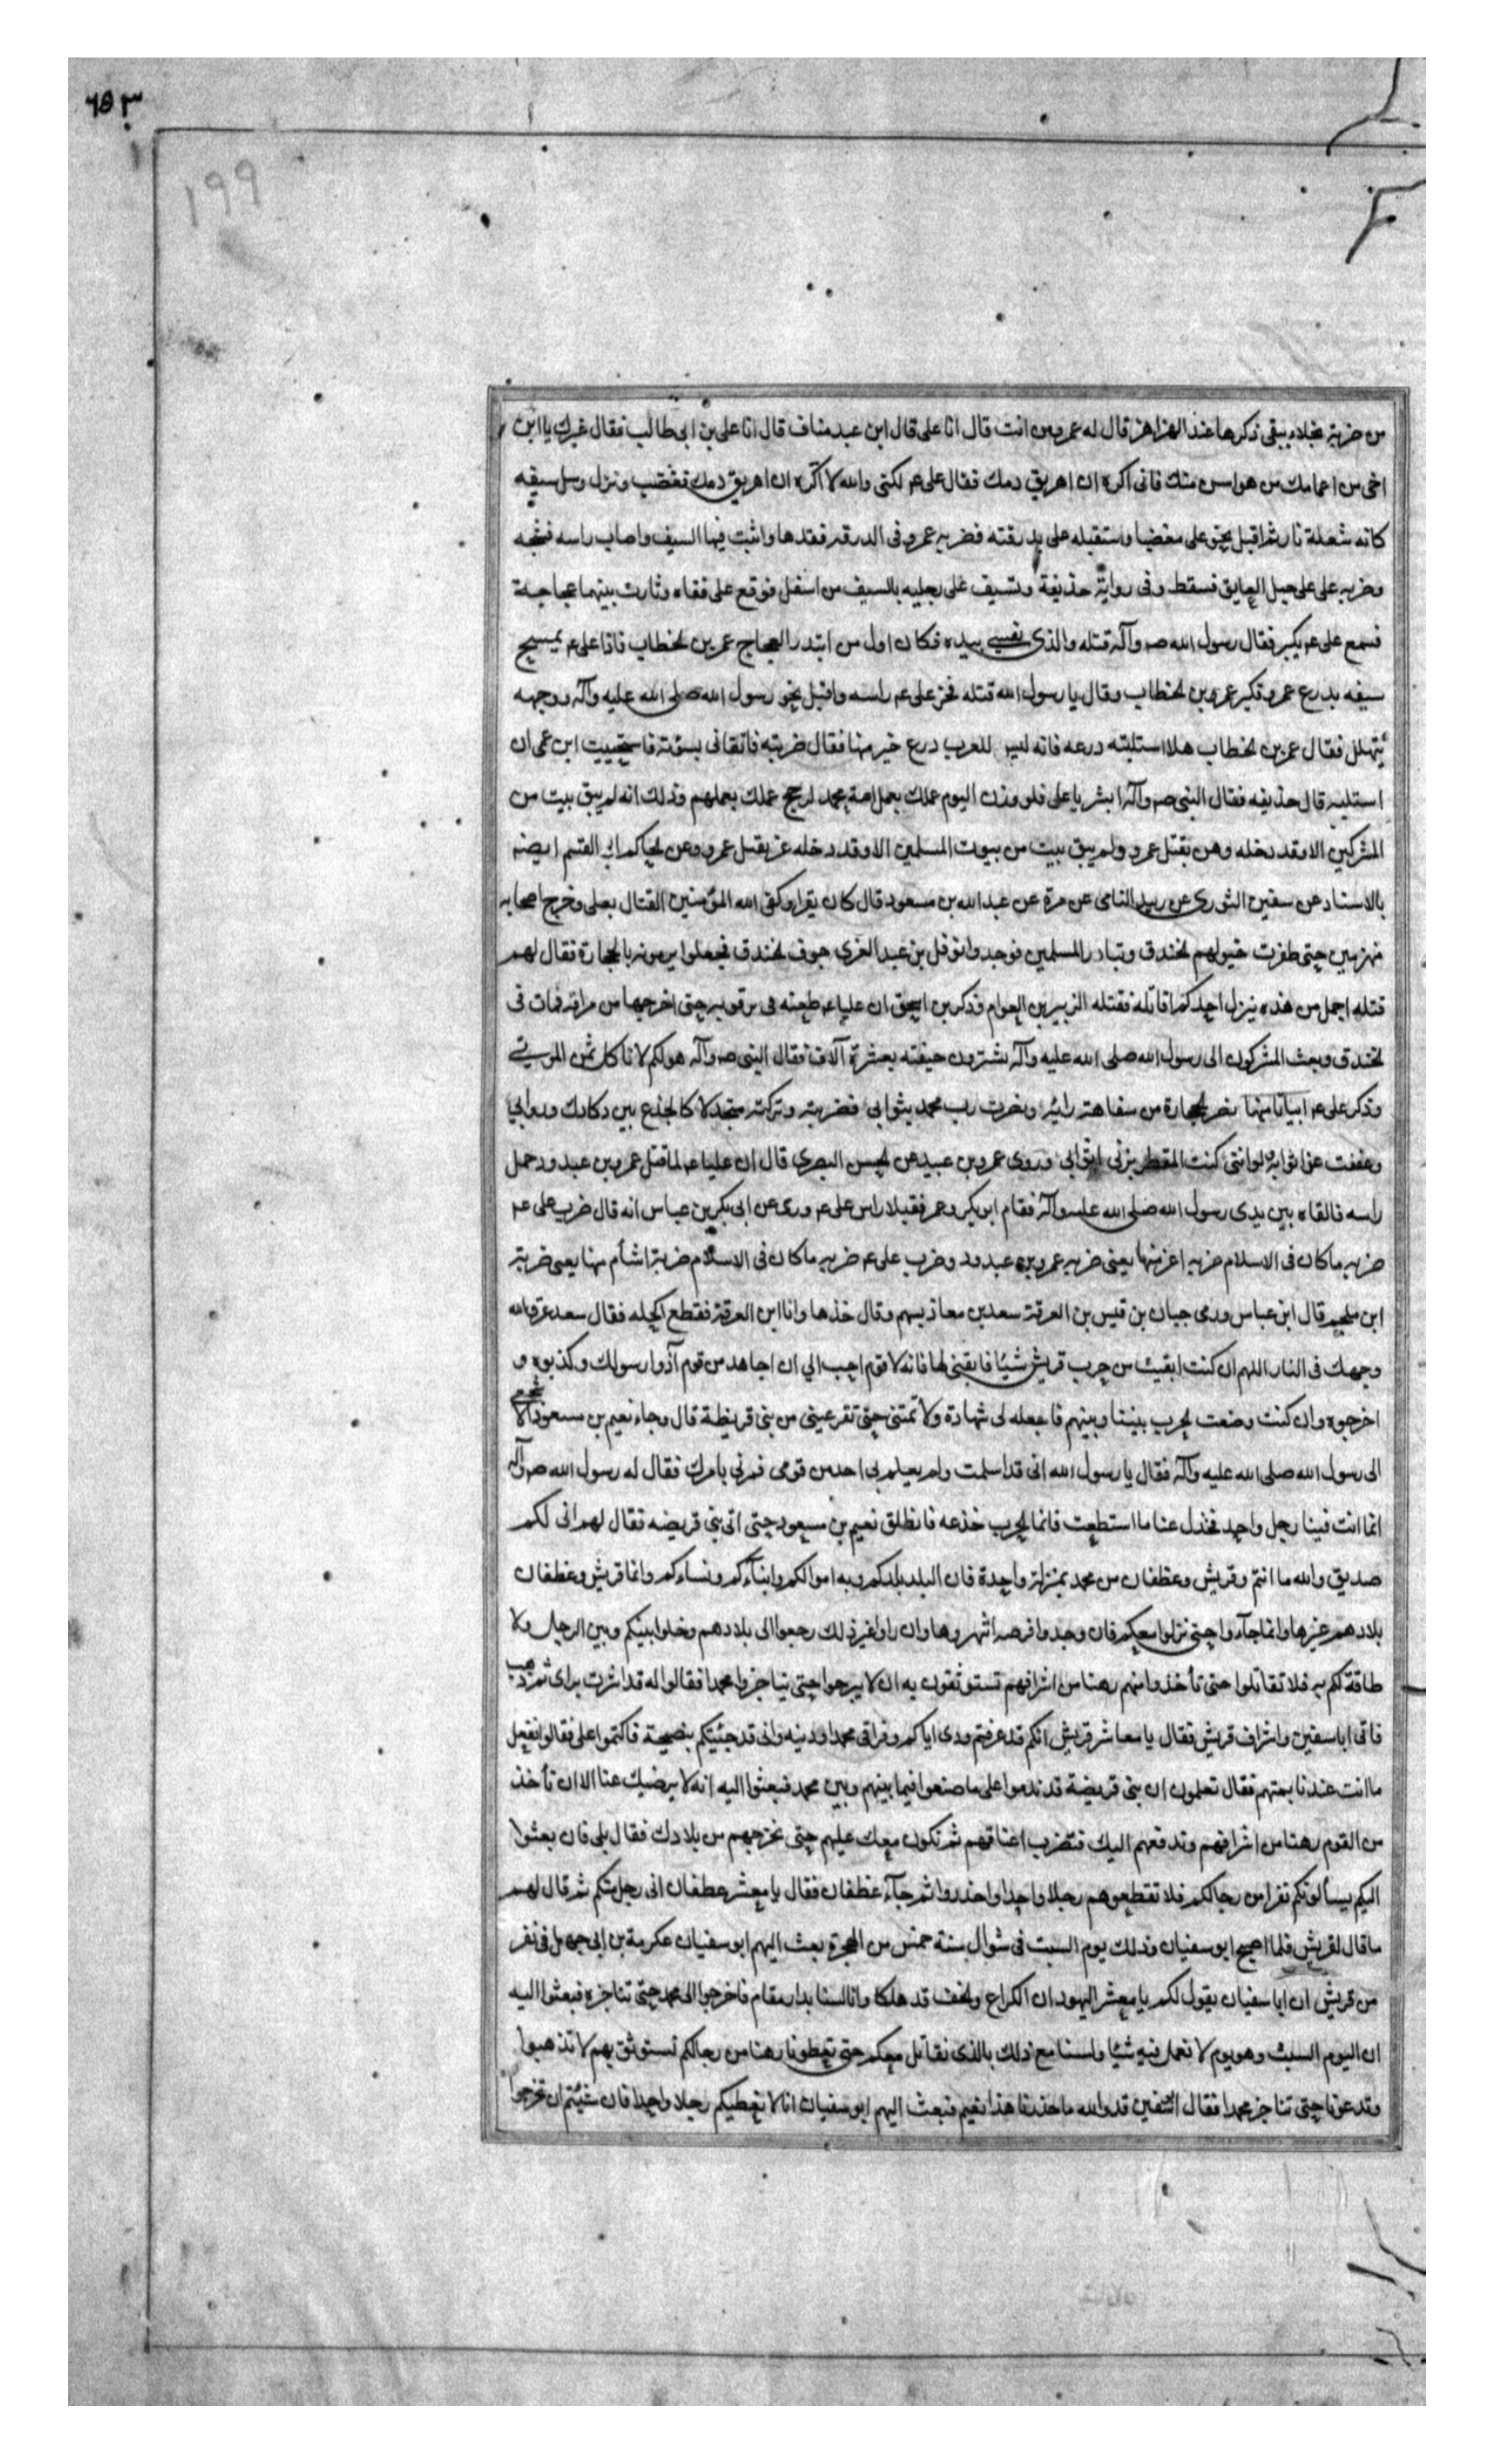 ٦٥٣
١٩٩
من ضربة نجلاء يبقى ذكرها عند الهزاهز قال له عمرو من انت قال انا على قال ابن عبد مناف قال انا على بن ابى طالب فقال غيرك يا ابن
اخى من اعمامك من هو اسن منك فانى اكره ان اهريق دمك فقال على عم لكنى والله لا اكره ان اهريق دمك فغضب ونزل وسل سيفه
كانه شعلة نار ثم اقبل نحو على مغضبا واستقبله على بدرقته فضربه عمرو فى الدرقه فقدها واثبت فيها السيف واصاب راسه فشجه
وضربه على على حبل العاتق فسقط وفى رواية حذيفة وتسيف على رجليه بالسيف من اسفل فوقع على قفاه وثارت بينهما عجاجة
فسمع على عم يكبر فقال رسول الله صه وآله قتله والذى نفسى بيده فكان اول من ابتدر العجاج عمر بن الخطاب فاذا على عم يمسح
سيفه بدرع عمرو فكبر عمر بن الخطاب وقال يا رسول الله قتله فحز على عم راسه واقبل نحو رسول الله صلى الله عليه وآله ووجهه
يتهلل فقال عمر بن الخطاب هلا استلبته درعه فانه ليس للعرب درع خير منها فقال ضربته فاتقانى بسوته فاستحييت ابن عمى ان
استلبه قال حذيفه فقال النبى صه وآله ابشر يا على فلو وزن اليوم عملك بعمل امة محمد لرجح عملك بعملهم وذلك انه لم يبق بيت من
المشركين الا وقد دخله وهن بقتل عمرو ولم يبق بيت من بيوت المسلمين الا وقد دخله عز بقتل عمرو وعن الحاكم ابى القسم ايضه
بالاسناد عن سفين الثورى عن زبيد النامى عن مرة عن عبد الله بن مسعود قال كان يقرا وكفى الله المؤمنين القتال بعلى وخرج اصحابه
منهزمين حتى طفرت خيولهم الخندق وتبادر المسلمين فوجدوا نوفل بن عبد العزى جوف الخندق فجعلوا يرمونه بالحجارة فقال لهم
قتله اجمل من هذه ينزل احدكم اقاتله فقتله الزبير بن العوام وذكر بن اسحق ان عليا عم طعنه فى ترقوته حتى اخرجها من مراقه فمات فى
الخندق وبعث المشركون الى رسول الله صلى الله عليه وآله يشترون جيفته بعشرة آلاف فقال النبى صه وآله هو لكم لا ناكل ثمن الموتى
وذكر على عم ابياتا منها نصر الحجارة من سفاهة رايه ونصرت رب محمد بثوابى فضربته وتركته متجدلا كالجذع بين دكادك وروابى
وعففت عن اثوابه لو اننى كنت المقطر بزنى اثوابى وروى عمرو بن عبيد عن الحسن البصرى قال ان عليا عم لما قتل عمرو بن عبد ود حمل
راسه فالقاه بين يدى رسول الله صلى الله عليه وآله فقام ابو بكر وعمر فقبلا راس على عم وروى عن ابى بكر بن عباس انه قال ضرب على عم
ضربه ما كان فى الاسلام ضربه اعز منها يعنى ضربه عمرو بن عبد ود وضرب على عم ضربه ما كان فى الاسلام ضربة اشأم منها يعنى ضربة
ابن ملجم قال ابن عباس ورمى حبان بن قيس بن العرقة سعد بن معاذ بسهم وقال خذها وانا ابن العرقة فقطع اكحله فقال سعد عرق الله
وجهك فى النار اللهم ان كنت ابقيت من حرب قريش شيئا فابقنى لها فانه لا قوم احب الي ان اجاهد من قوم آذوا رسولك وكذبوه و
اخرجوه وان كنت وضعت الحرب بيننا وبينهم فاجعله لى شهادة ولا تمتنى حتى تقر عينى من بنى قريظة قال وجاء نعيم بن مسعود الاشجعى
الى رسول الله صلى الله عليه وآله فقال يا رسول الله انى قد اسلمت ولم يعلم بى احد من قومى فمرنى بامرك فقال له رسول الله صه وآله
انما انت فينا رجل واحد فخذل عنا ما استطعت فانما الحرب خذعه فانطلق نعيم بن مسعود حتى اتى بنى قريضه فقال لهم انى لكم
صديق والله ما انتم وقريش وغطفان من محمد بمنزلة واحدة فان البلد بلدكم وبه اموالكم وابناؤكم ونساءكم وانما قريش وغطفان
بلادهم غيرها وانما جآءوا حتى نزلوا معكم فان وجدوا فرصه انتهزوها وان راوا غير ذلك رجعوا الى بلادهم وخلوا بينكم وبين الرجل ولا
طاقة لكم به فلا تقاتلوا حتى تأخذوا منهم رهنا من اشرافهم تستوثقون به ان لا يبرحوا حتى يناجزوا محمدا فقالوا له قد اشرت براى ثم ذهب
فاتى ابا سفين واشراف قريش فقال يا معاشر قريش انكم قد عرفتم ودى اياكم وفراقى محمدا ودينه وانى قد جئتكم بنصيحة فاكتموا على فقالوا نفعل
ما انت عندنا بمتهم فقال تعلمون ان بنى قريضة قد ندموا على ما صنعوا فيما بينهم وبين محمد فبعثوا اليه انه لا يرضيك عنا الا ان نأخذ
من القوم رهنا من اشرافهم وندفعهم اليك فتضرب اعناقهم ثم نكون معك عليهم حتى نخرجهم من بلادك فقال بلى فان بعثوا
اليكم يسألونكم نفرا من رجالكم فلا تعطوهم رجلا واحدا واحذروا ثم جآء غطفان فقال يا معشر غطفان انى رجل منكم ثم قال لهم
ما قال لقريش فلما اصبح ابو سفيان وذلك يوم السبت فى شوال سنة خمس من الهجرة بعث اليهم ابو سفيان عكرمة بن ابى جهل فى نفر
من قريش ان ابا سفيان يقول لكم يا معشر اليهود ان الكراع والخف قد هلكا وانا لسنا بدار مقام فاخرجوا الى محمد حتى نناجزه فبعثوا اليه
ان اليوم السبت وهو يوم لا نعمل فيه شيئا ولسنا مع ذلك بالذى نقاتل معكم حتى تعطونا رهنا من رجالكم نستوثق بهم لا تذهبوا
وتدعونا حتى نناجز محمدا فقال سفين قد والله ما حذرنا هذا نعيم فبعث اليهم ابو سفيان انا لا نعطيكم رجلا واحدا فان شئتم ان تخرجوا